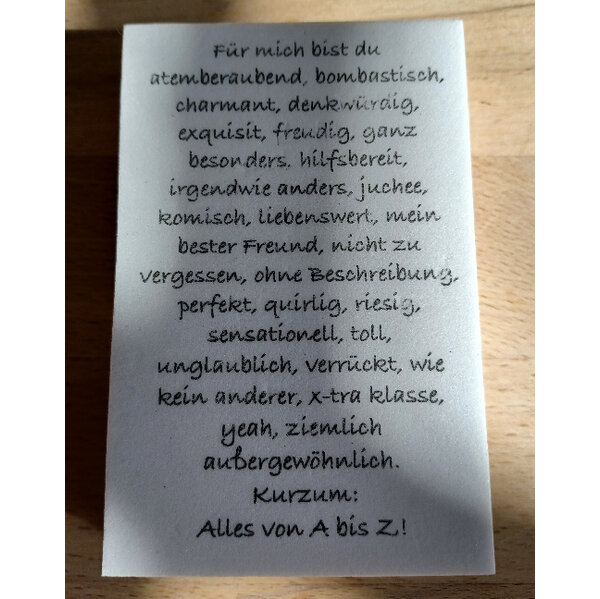 Für mich bist du
atemberaubend, bombastisch,
charmant, denkwürdig,
exquisit, freudig, ganz
besonders, hilfsbereit,
irgendwie anders, juchee,
komisch, liebenswert, mein
bester Freund, nicht zu
vergessen, ohne Beschreibung,
perfekt, quirlig, riesig,
sensationell, toll,
unglaublich, verrückt, wie
kein anderer, x-tra klasse,
yeah, ziemlich
außergewöhnlich.
Kurzum:
Alles von A bis Z!